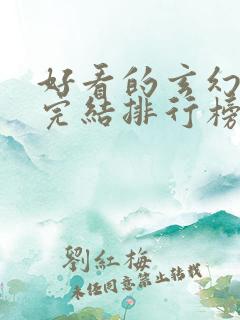 好看的玄幻
完結排行榜
劉紅梅
未經同意禁止轉載